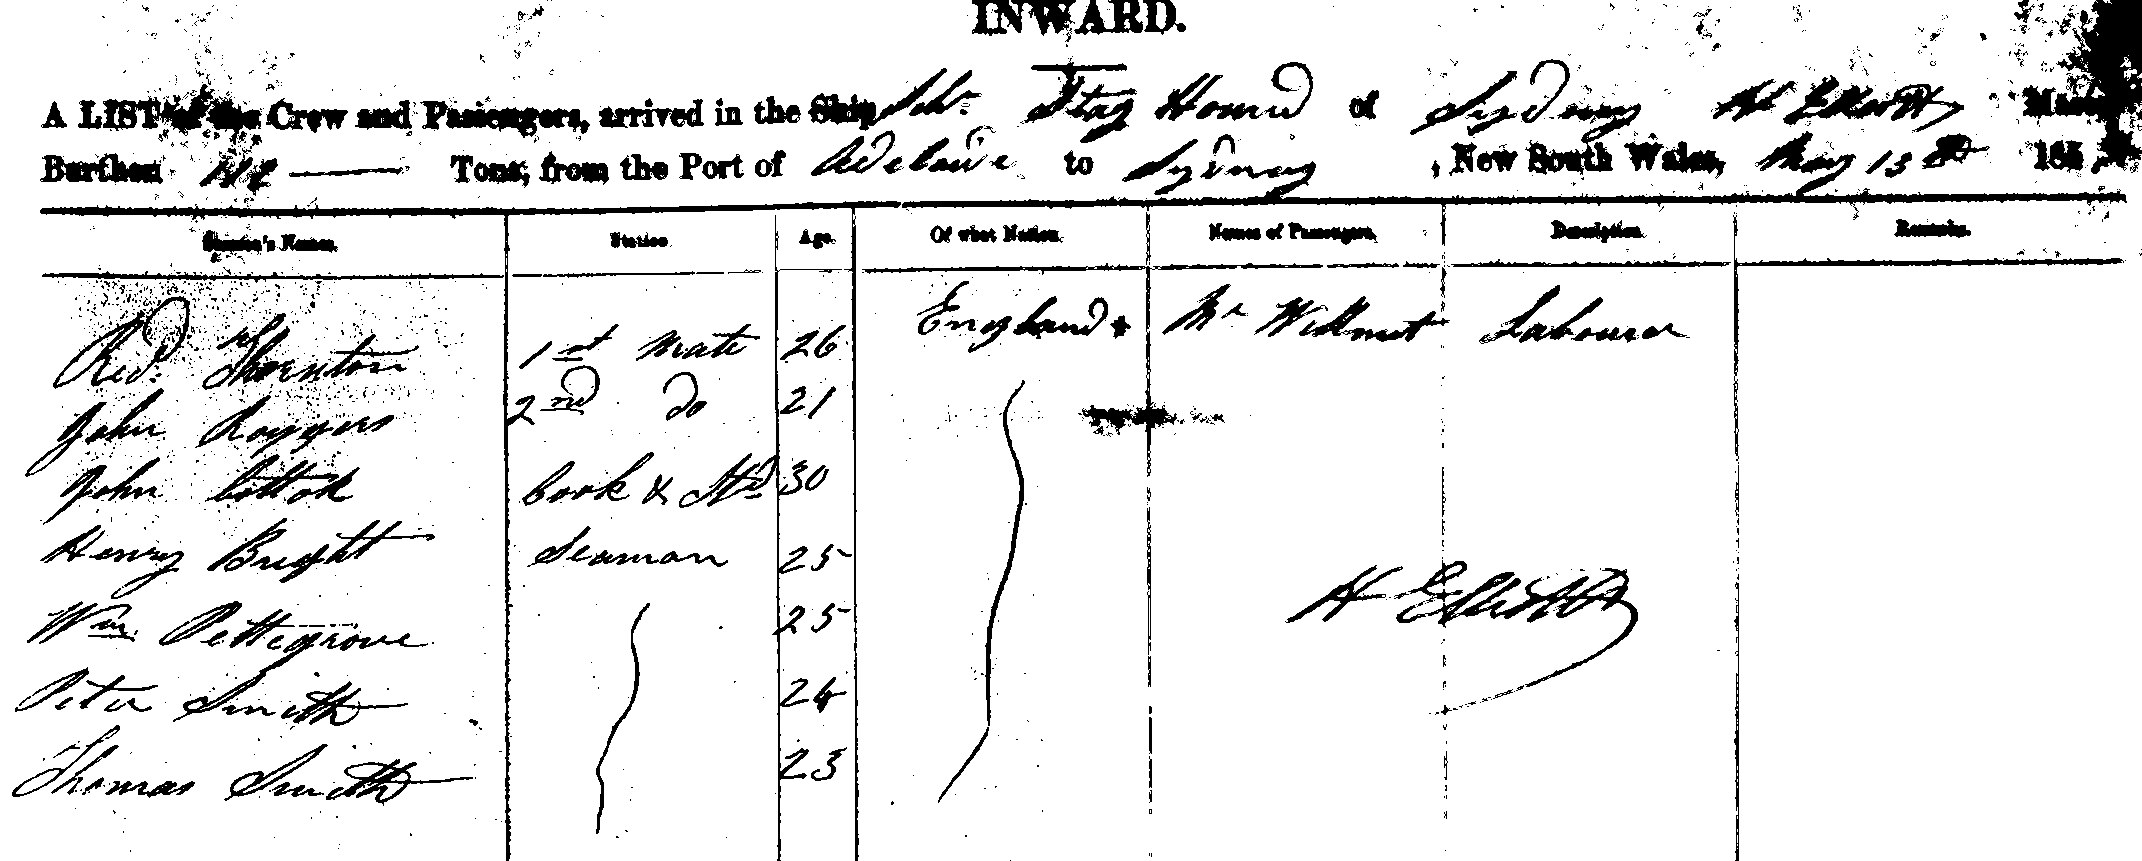 INWARD.
A LIST of the Crew and Passengers, arrived in the Ship Schr. Stag Hound of Sydney H Elliott, Master
Burthen Tons, from the Port of Adelaide to Sydney, New South Wales, May 13 185
Seamen's Names. Station Age. Of what Nation. Names of Passengers. Description. Remarks.
Ricd. Thornton 1st Mate 26 England Mr Willmut Labourer
John Roggers 2nd do 21
John Cook & Std 30
Henry Bright Seaman 25
Wm Pettegrove 25
Peter Smith 24
H Elliott
Thomas Smith 23